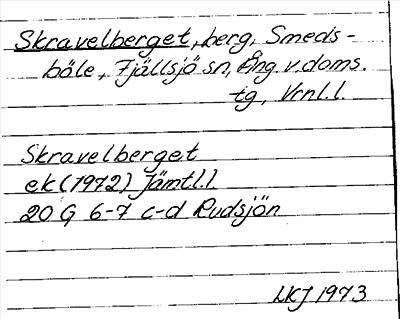 Skravelberget, berg, Smeds-
böle, Fjällsjö sn, Ång. v. doms.
tg, Vrnl. l.
Skravelberget
ek (1972) Jämtl. l.
20 G 6-7 c-d Rudsjön
LKJ 1973